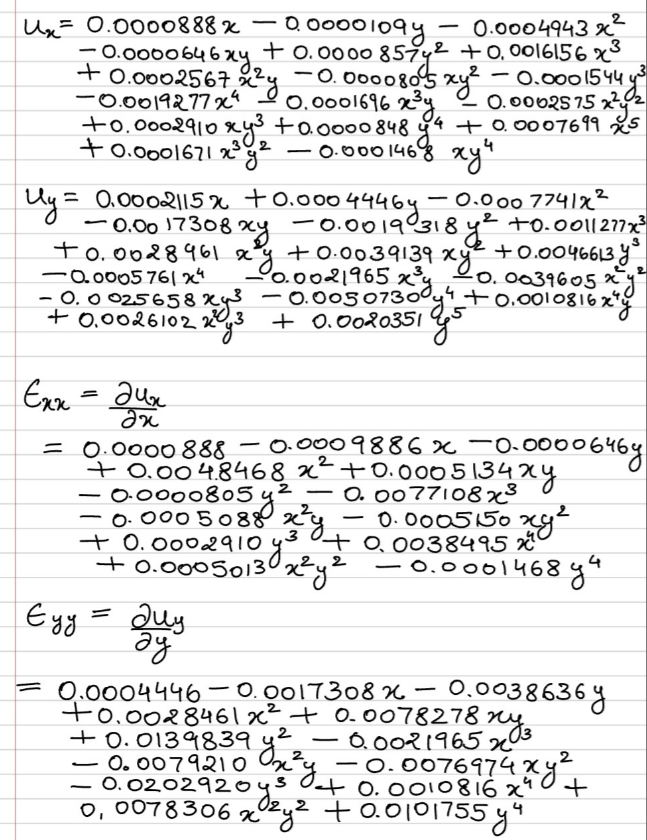 Ux = 0.0000888x - 0.0000109y - 0.0004943x²
- 0.0000646xy + 0.0000857y² + 0.0016156x³
+ 0.0002567x²y - 0.0000805xy² - 0.0001544y³
- 0.0019277x⁴ - 0.0001696x³y - 0.0002575x²y²
+ 0.0002910xy³ + 0.0000848y⁴ + 0.0007699x⁵
+ 0.0001671x³y² - 0.0001468xy⁴
Uy = 0.0002115x + 0.0004446y - 0.0007741x²
- 0.0017308xy - 0.0019318y² + 0.0011277x³
+ 0.0028461x²y + 0.0039139xy² + 0.0046613y³
- 0.0005761x⁴ - 0.0021965x³y - 0.0039605x²y²
- 0.0025658xy³ - 0.0050730y⁴ + 0.0010816x⁴y
+ 0.0026102x²y³ + 0.0020351y⁵
Ԑxx = ∂Ux/∂x
= 0.0000888 - 0.0009886x - 0.0000646y
+ 0.0048468x² + 0.0005134xy
- 0.0000805y² - 0.0077108x³
- 0.0005088x²y - 0.0005150xy²
+ 0.0002910y³ + 0.0038495x⁴
+ 0.0005013x²y² - 0.0001468y⁴
Ԑyy = ∂Uy/∂y
= 0.0004446 - 0.0017308x - 0.0038636y
+ 0.0028461x² + 0.0078278xy
+ 0.0139839y² - 0.0021965x³
- 0.0079210x²y - 0.0076974xy²
- 0.0202920y³ + 0.0010816x⁴ +
0.0078306x²y² + 0.0101755y⁴